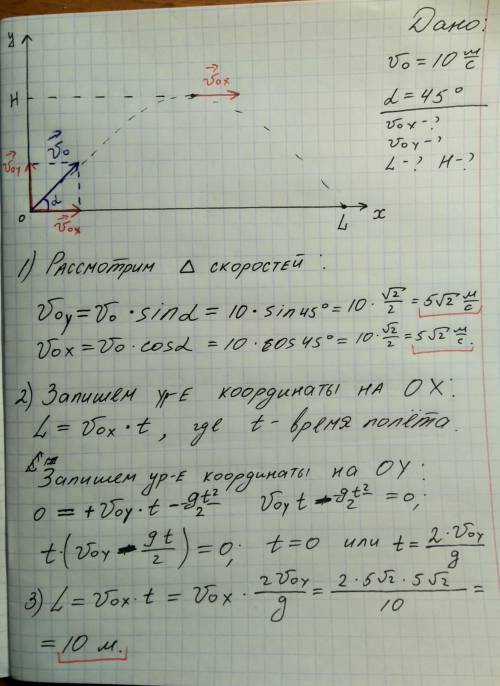 Дано:
v₀ = 10 м/с
α = 45°
v₀ₓ - ?
v₀y - ?
L - ? H - ?
y
H
v⃗₀ₓ
v⃗₀y
v⃗₀
α
0
v⃗₀ₓ
L
x
1) Рассмотрим △ скоростей:
v₀y = v₀ · sinα = 10 · sin45° = 10 · √2/2 = 5√2 м/с
v₀ₓ = v₀ · cosα = 10 · cos45° = 10 · √2/2 = 5√2 м/с.
2) Запишем ур-е координаты на OX:
L = v₀ₓ · t, где t - время полёта.
Запишем ур-е координаты на OY:
0 = + v₀y · t - gt²/2 v₀y t - gt²/2 = 0;
t · (v₀y - gt/2) = 0; t = 0 или t = 2 · v₀y/g
3) L = v₀ₓ · t = v₀ₓ · 2v₀y/g = 2 · 5√2 · 5√2/10 =
= 10 м.